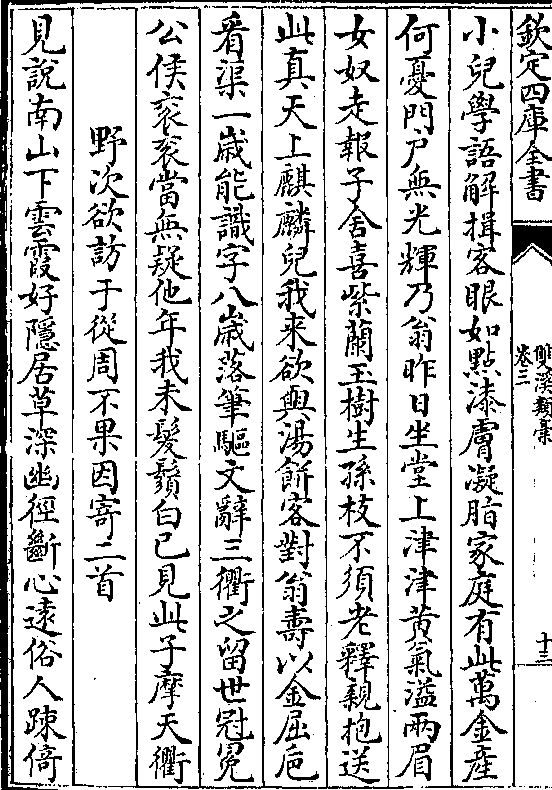 欽定四庫全書
雙溪類稾
卷三
十三
小兒學語解揖客眼如點漆膚凝脂家庭有此萬金産
何憂門户無光輝乃翁昨日坐堂上津津黄氣溢兩眉
女奴走報子舍喜紫蘭玉樹生孫枝不須老釋親抱送
此真天上麒麟兒我来欲與湯餅客對翁壽以金屈巵
看渠一歲能識字八歲落筆驅文辭三衢之留世冠冕
公侯衮衮當無疑他年我未髮鬚白已見此子摩天衢
野次欲訪于從周不果因寄二首
見說南山下雲霞好隱居草深幽徑斷心遠俗人踈倚